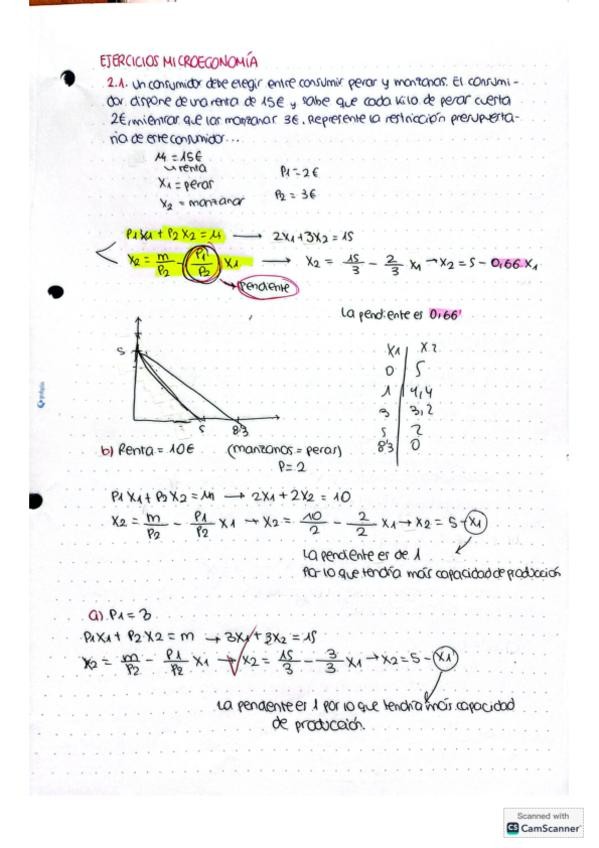 EJERCICIOS MICROECONOMÍA
2.1. Un consumidor debe elegir entre consumir peras y manzanas. El consumi-
dor dispone de una renta de 15€ y sabe que cada kilo de peras cuesta
2€, mientras que las manzanas 3€. Represente la restricción presupuesta-
ria de este consumidor...
M = 15€
renta
X1 = peras
X2 = manzanas
P1 = 2€
P2 = 3€
P1X1 + P2X2 = M → 2X1 + 3X2 = 15
X2 = m/P2 - P1/P2 X1 → X2 = 15/3 - 2/3 X1 → X2 = 5 - 0,66 X1
Pendiente
La pendiente es 0,66
5
5 8'3
X1 X2
0 5
1 4,4
3 3,2
5 2
8'3 0
b) Renta = 10€ (manzanas = peras)
P = 2
P1X1 + P2X2 = M → 2X1 + 2X2 = 10
X2 = m/P2 - P1/P2 X1 → X2 = 10/2 - 2/2 X1 → X2 = 5 - X1
La pendiente es de 1
Por lo que tendría más capacidad de producción
a) P1 = 3
P1X1 + P2X2 = m → 3X1 + 3X2 = 15
X2 = m/P2 - P1/P2 X1 → X2 = 15/3 - 3/3 X1 → X2 = 5 - X1
La pendente es 1 por lo que tendría más capacidad
de producción.
Scanned with
CS CamScanner